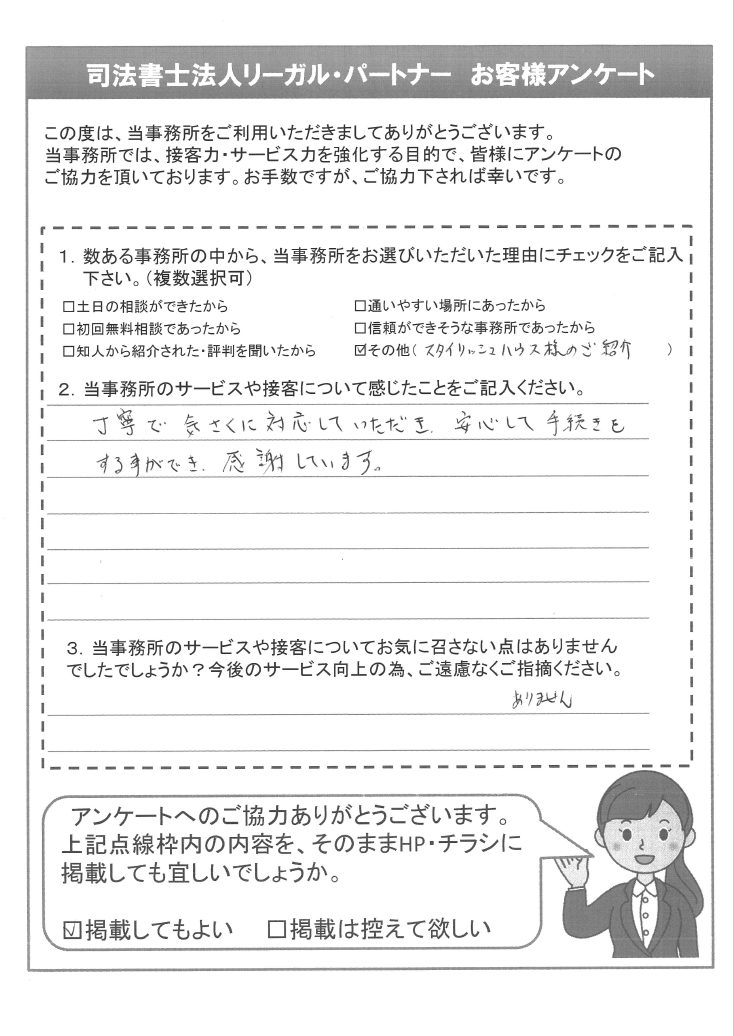 司法書士法人リーガル・パートナー　お客様アンケート
この度は、当事務所をご利用いただきましてありがとうございます。
当事務所では、接客力・サービス力を強化する目的で、皆様にアンケートの
ご協力を頂いております。お手数ですが、ご協力下されば幸いです。
1．数ある事務所の中から、当事務所をお選びいただいた理由にチェックをご記入
下さい。（複数選択可）
□土日の相談ができたから　□通いやすい場所にあったから
□初回無料相談であったから　□信頼ができそうな事務所であったから
□知人から紹介された・評判を聞いたから　☑その他（スタイリッシュハウス様のご紹介　）
2．当事務所のサービスや接客について感じたことをご記入ください。
丁寧で気さくに対応していただき、安心して手続きを
する事ができ、感謝しています。
3．当事務所のサービスや接客についてお気に召さない点はありません
でしたでしょうか？今後のサービス向上の為、ご遠慮なくご指摘ください。
ありません
アンケートへのご協力ありがとうございます。
上記点線枠内の内容を、そのままHP・チラシに
掲載しても宜しいでしょうか。
☑掲載してもよい　□掲載は控えて欲しい